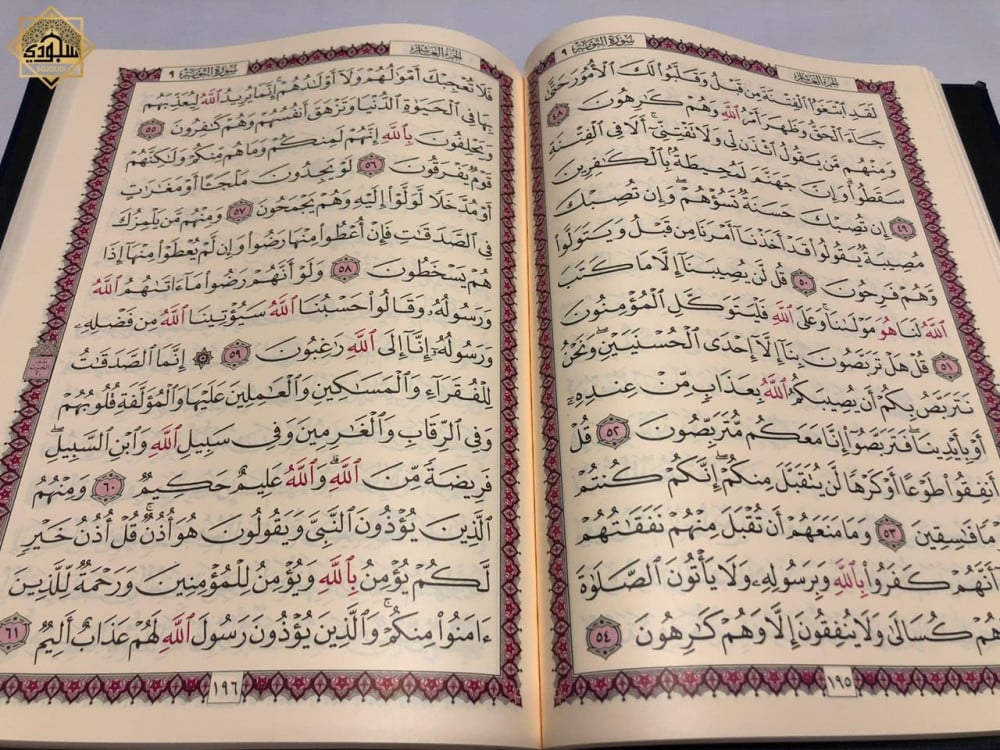 سجودي
SOJOUDI
سورة التوبة ٩
الجزء العاشر
لَقَدِ ٱبْتَغَوُاْ ٱلْفِتْنَةَ مِن قَبْلُ وَقَلَّبُواْ لَكَ ٱلْأُمُورَ حَتَّىٰ
جَآءَ ٱلْحَقُّ وَظَهَرَ أَمْرُ ٱللَّهِ وَهُمْ كَٰرِهُونَ ٤٨
وَمِنْهُم مَّن يَقُولُ ٱئْذَن لِّى وَلَا تَفْتِنِّىٓ ۚ أَلَا فِى ٱلْفِتْنَةِ
سَقَطُواْ ۗ وَإِنَّ جَهَنَّمَ لَمُحِيطَةٌۢ بِٱلْكَٰفِرِينَ
٤٩ إِن تُصِبْكَ حَسَنَةٌ تَسُؤْهُمْ ۖ وَإِن تُصِبْكَ
مُصِيبَةٌ يَقُولُواْ قَدْ أَخَذْنَآ أَمْرَنَا مِن قَبْلُ وَيَتَوَلَّواْ
وَّهُمْ فَرِحُونَ ٥٠ قُل لَّن يُصِيبَنَآ إِلَّا مَا كَتَبَ
ٱللَّهُ لَنَا هُوَ مَوْلَىٰنَا ۚ وَعَلَى ٱللَّهِ فَلْيَتَوَكَّلِ ٱلْمُؤْمِنُونَ
٥١ قُلْ هَلْ تَرَبَّصُونَ بِنَآ إِلَّآ إِحْدَى ٱلْحُسْنَيَيْنِ ۖ وَنَحْنُ
نَتَرَبَّصُ بِكُمْ أَن يُصِيبَكُمُ ٱللَّهُ بِعَذَابٍ مِّنْ عِندِهِۦٓ
أَوْ بِأَيْدِينَا ۖ فَتَرَبَّصُوٓاْ إِنَّا مَعَكُم مُّتَرَبِّصُونَ ٥٢ قُلْ
أَنفِقُواْ طَوْعًا أَوْ كَرْهًا لَّن يُتَقَبَّلَ مِنكُمْ ۖ إِنَّكُمْ كُنتُمْ
قَوْمًا فَٰسِقِينَ ٥٣ وَمَا مَنَعَهُمْ أَن تُقْبَلَ مِنْهُمْ نَفَقَٰتُهُمْ
إِلَّآ أَنَّهُمْ كَفَرُواْ بِٱللَّهِ وَبِرَسُولِهِۦ وَلَا يَأْتُونَ ٱلصَّلَوٰةَ
إِلَّا وَهُمْ كُسَالَىٰ وَلَا يُنفِقُونَ إِلَّا وَهُمْ كَٰرِهُونَ ٥٤
١٩٥
الجزء العاشر
سورة التوبة ٩
فَلَا تُعْجِبْكَ أَمْوَٰلُهُمْ وَلَآ أَوْلَٰدُهُمْ ۚ إِنَّمَا يُرِيدُ ٱللَّهُ لِيُعَذِّبَهُم
بِهَا فِى ٱلْحَيَوٰةِ ٱلدُّنْيَا وَتَزْهَقَ أَنفُسُهُمْ وَهُمْ كَٰفِرُونَ ٥٥
وَيَحْلِفُونَ بِٱللَّهِ إِنَّهُمْ لَمِنكُمْ وَمَا هُم مِّنكُمْ وَلَٰكِنَّهُمْ
قَوْمٌ يَفْرَقُونَ ٥٦ لَوْ يَجِدُونَ مَلْجَـًٔا أَوْ مَغَٰرَٰتٍ
أَوْ مُدَّخَلًا لَّوَلَّوْاْ إِلَيْهِ وَهُمْ يَجْمَحُونَ ٥٧ وَمِنْهُم مَّن يَلْمِزُكَ
فِى ٱلصَّدَقَٰتِ فَإِنْ أُعْطُواْ مِنْهَا رَضُواْ وَإِن لَّمْ يُعْطَوْاْ مِنْهَآ إِذَا
هُمْ يَسْخَطُونَ ٥٨ وَلَوْ أَنَّهُمْ رَضُواْ مَآ ءَاتَىٰهُمُ ٱللَّهُ
وَرَسُولُهُۥ وَقَالُواْ حَسْبُنَا ٱللَّهُ سَيُؤْتِينَا ٱللَّهُ مِن فَضْلِهِۦ
وَرَسُولُهُۥٓ إِنَّآ إِلَى ٱللَّهِ رَٰغِبُونَ ٥٩ ۞ إِنَّمَا ٱلصَّدَقَٰتُ
لِلْفُقَرَآءِ وَٱلْمَسَٰكِينِ وَٱلْعَٰمِلِينَ عَلَيْهَا وَٱلْمُؤَلَّفَةِ قُلُوبُهُمْ
وَفِى ٱلرِّقَابِ وَٱلْغَٰرِمِينَ وَفِى سَبِيلِ ٱللَّهِ وَٱبْنِ ٱلسَّبِيلِ ۖ
فَرِيضَةً مِّنَ ٱللَّهِ ۗ وَٱللَّهُ عَلِيمٌ حَكِيمٌ ٦٠ وَمِنْهُمُ
ٱلَّذِينَ يُؤْذُونَ ٱلنَّبِىَّ وَيَقُولُونَ هُوَ أُذُنٌ ۚ قُلْ أُذُنُ خَيْرٍ
لَّكُمْ يُؤْمِنُ بِٱللَّهِ وَيُؤْمِنُ لِلْمُؤْمِنِينَ وَرَحْمَةٌ لِّلَّذِينَ
ءَامَنُواْ مِنكُمْ ۚ وَٱلَّذِينَ يُؤْذُونَ رَسُولَ ٱللَّهِ لَهُمْ عَذَابٌ أَلِيمٌ ٦١
١٩٦